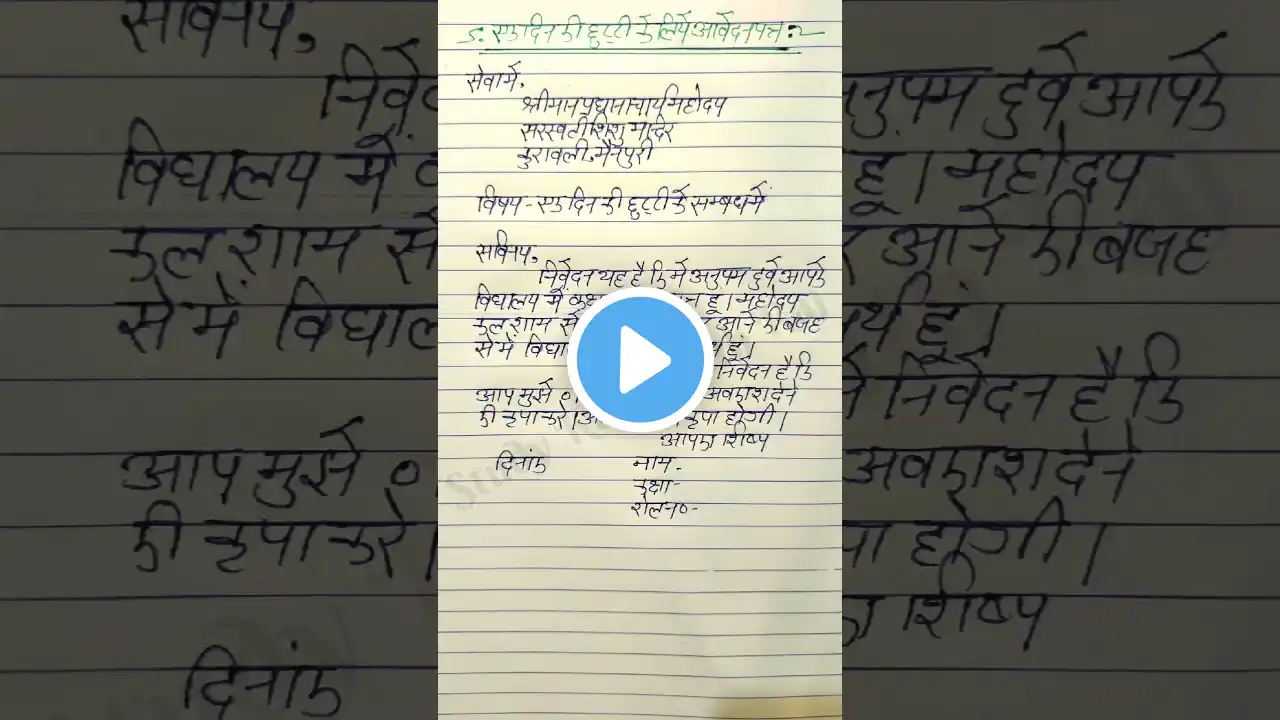 5:- एक दिन की छुट्टी के लिये आवेदन पत्र :-
सेवा में,
श्रीमान प्रधानाचार्य महोदय
सरस्वती शिशु मन्दिर
कुरावली, मैनपुरी
विषय - एक दिन की छुट्टी के सम्बध में
सविनय,
निवेदन यह है कि मैं अनुपम दुबे आपके
विद्यालय में कक्षा हू। महोदय
कल शाम से आने की बजह
से में विद्या हूं।
निवेदन है कि
आप मुझे अवकाश देने
की कृपा करे। कृपा होगी।
आपका शिष्य
दिनांक नाम -
कक्षा -
रोल न० -